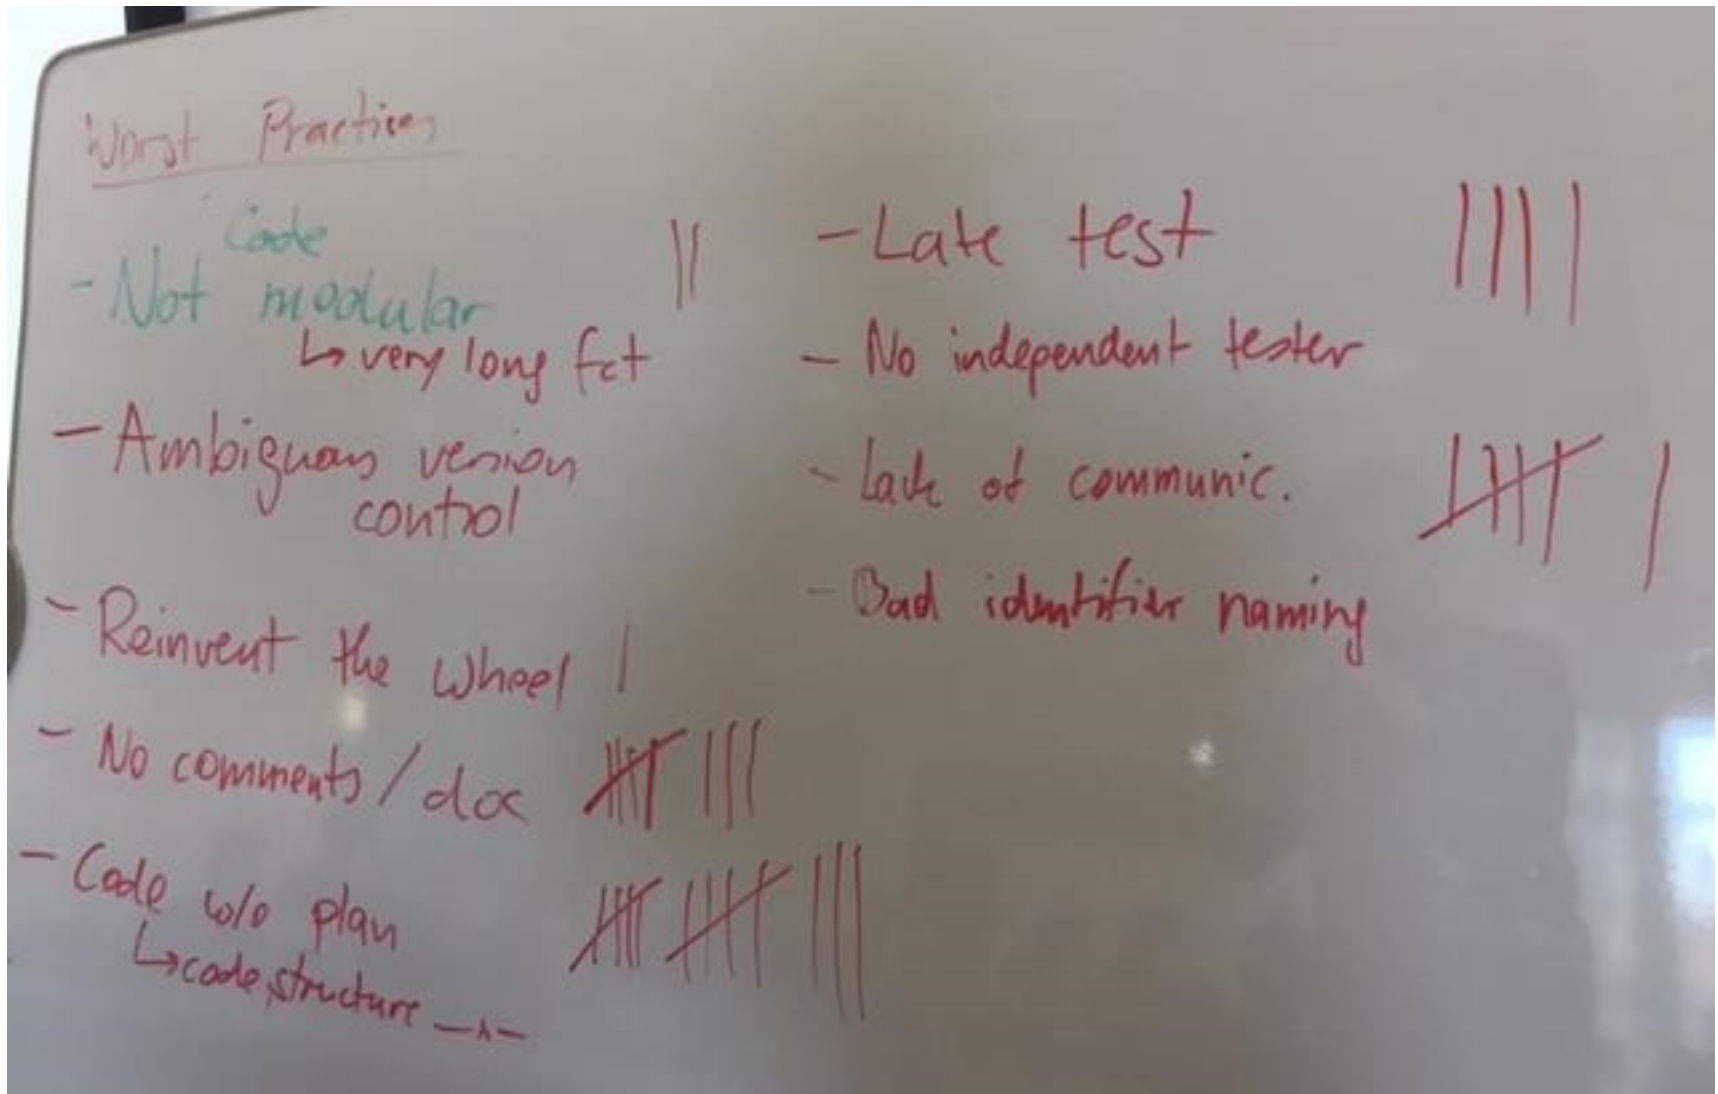 Worst Practices
Code
- Not modular ||
↳ very long fct
- Ambiguous version
control
- Reinvent the wheel |
- No comments / doc |||| |||
- Code w/o plan |||| |||| |||
↳ code structure
- Late test ||||
- No independent tester
- Lack of communic. |||| |
- Bad identifier naming